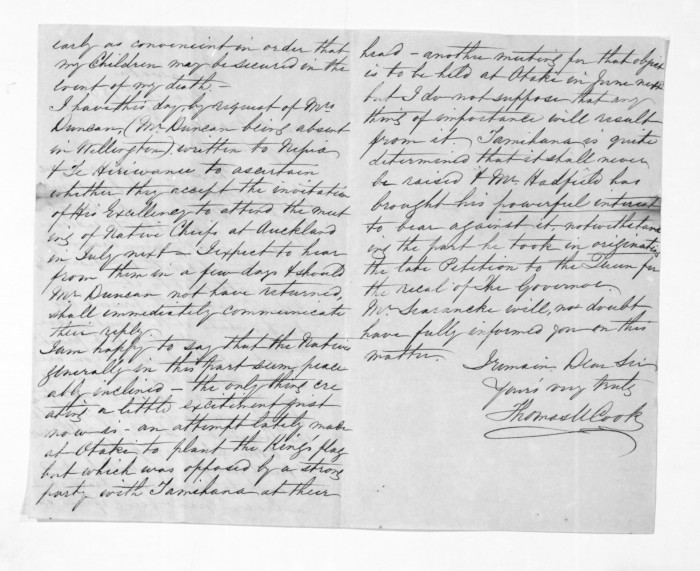 early as convenient in order that
my Children may be secured in the
event of my death. –
I have this day, by request of Mrs
Duncan, (Mr Duncan being absent
in Wellington) written to Nepia
& Te Hiriwanu to ascertain
whether they accept the invitation
of His Excellency to attend the meet
ing of Native Chiefs at Auckland
in July next – I expect to hear
from them in a few days & should
Mr Duncan not have returned,
shall immediately communicate
their reply.
I am happy to say that the Natives
generally in this part seem peace
ably inclined – the only thing cre
ating a little excitement just
now is – an attempt lately made
at Otaki to plant the King's flag
but which was opposed by a strong
party with Tamihana at their
head – another meeting for that object
is to be held at Otaki in June next
but I do not suppose that any
thing of importance will result
from it. Tamihana is quite
determined that it shall never
be raised & Mr Hadfield has
brought his powerful interest
to bear against it, notwithstand
ing the part he took in originating
the late Petition to the Queen for
the recal of the Governor.
Mr Searancke will, no doubt
have fully informed you on this
matter.
I remain, Dear Sir
Yours very truly
Thomas U Cook